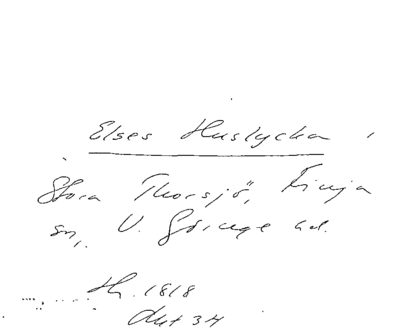 Elses Huslycka,
Stora Thorsjö, Finja
sn, V. Göinge hd.
Th. 1818
Akt 34